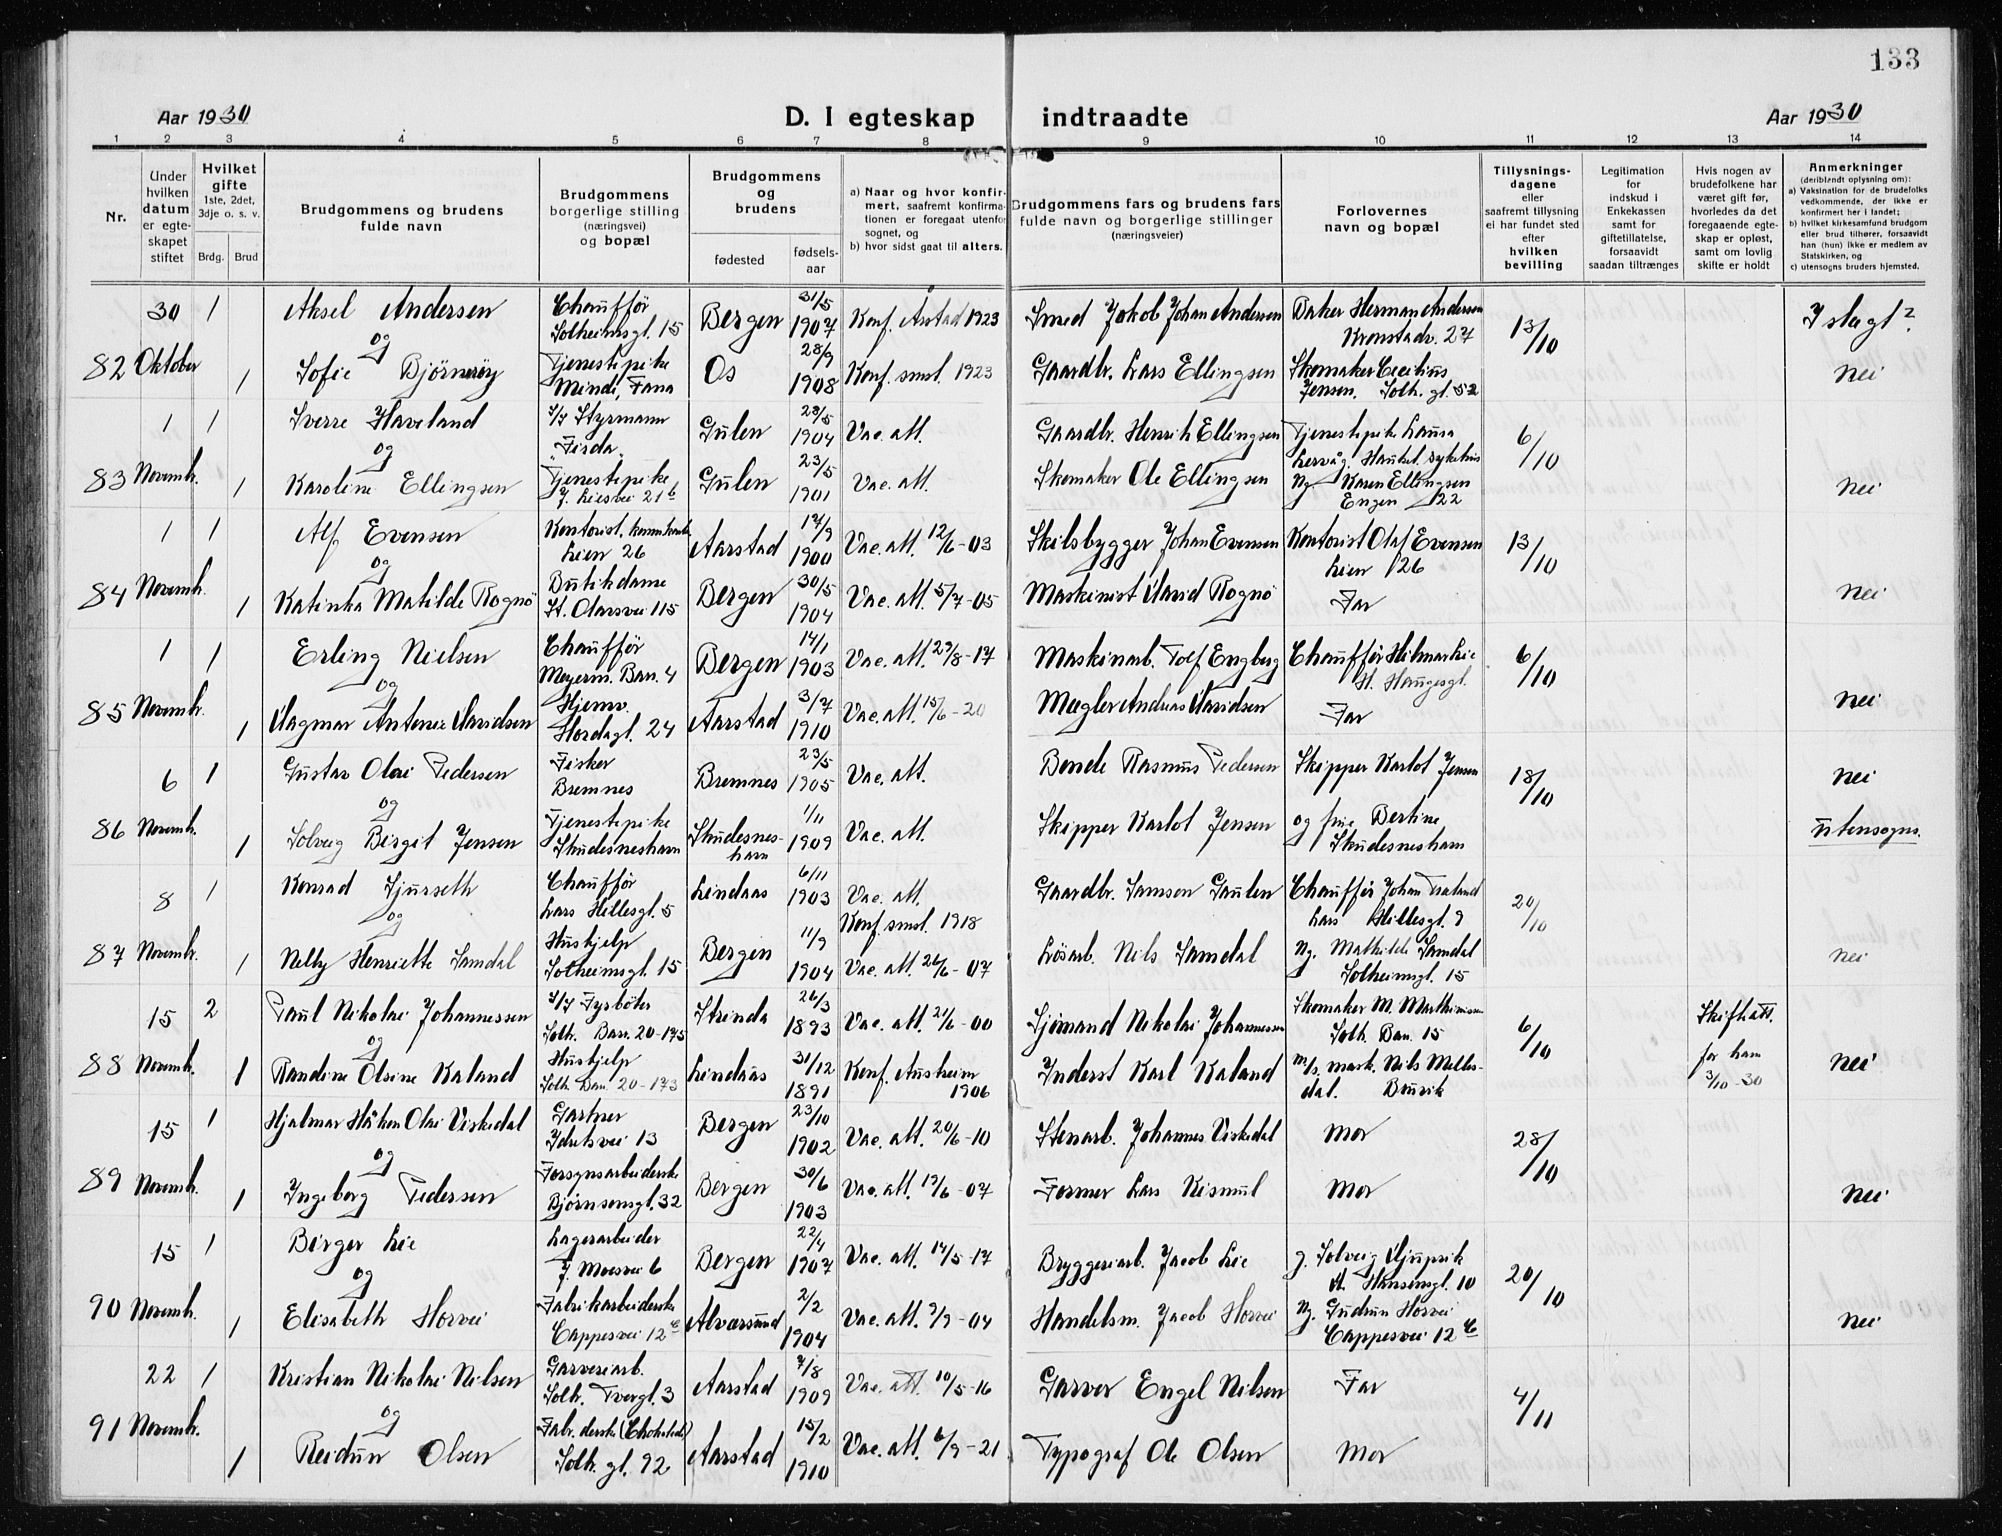 133
Aar 1930 D. I egteskap indtraadte Aar 1930
1 2 3 4 5 6 7 8 9 10 11 12 13 14
Nr.
Under
hvilken
datum
er egte-
skapet
stiftet
Hvilket
gifte
1ste, 2det,
3dje o. s. v.
Brdg. Brud
Brudgommens og brudens
fulde navn
Brudgommens
borgerlige stilling
(næringsvei)
og bopæl
Brudgommens
og
brudens
fødested
fødsels-
aar
a) Naar og hvor konfir-
mert, saafremt konfirma-
tionen er foregaat utenfor
sognet, og
b) hvor sidst gaat til alters.
Brudgommens fars og brudens fars
fulde navn og borgerlige stillinger
(næringsveier)
Forlovernes
navn og bopæl
Tillysnings-
dagene
eller
saafremt tillysning
ei har fundet sted
efter
hvilken
bevilling
Legitimation
for
indskud i
Enkekassen
samt for
giftetillatelse,
forsaavidt
saadan tiltrænges
Hvis nogen av
brudefolkene har
været gift før,
hvorledes da det
foregaaende egte-
skap er opløst,
samt om lovlig
skifte er holdt
Anmerkninger
(deriblendt oplysning om):
a) Vaksination for de brudefolks
vedkommende, der ikke er
konfirmert her i landet;
b) hvilket kirkesamfund brudgom
eller brud tilhører, forsaavidt
han (hun) ikke er medlem av
Statskirken, og
c) utensogns bruders hjemsted.
82 30 Oktober 1 Aksel Andersen Chauffør Solheimsgt. 15 Bergen 31/5 1907 Konf. Årstad 1923 Smed Jakob Johan Andersen Baker Herman Andersen Kronstadv. 27 13/10 I slegt?
og
1 Sofie Bjørnerøy Tjenestepike Minde, Fana Os 28/9 1908 Konf. smst. 1923 Gaardbr. Lars Ellingsen Skomaker Cecilius Jensen. Solh. gt. 52 nei
83 1 Novembr. 1 Sverre Haveland S/S Styrmann "Fisda" Gulen 28/5 1904 Vac. att. Gaardbr. Henrik Ellingsen Tjenestepike Laura Lervåg. Haukel. sykehus 6/10
og
1 Karoline Ellingsen Tjenestepike J. Liesvei 21b Gulen 23/5 1901 Vac. att. Skomaker Ole Ellingsen Ng. Karen Ellingsen Engen 22 nei
84 1 Novembr. 1 Alf Evensen Kontorist, Lien 26 Aarstad 17/9 1900 Vac. att. 12/6-03 Skibsbygger Johan Evensen Kontorist Olaf Evensen Lien 126 13/10
og
1 Katinka Matilde Rognø Butikdame St. Olavsvei 115 Bergen 30/5 1904 Vac. att. 5/7-05 Maskinist David Rognø Far nei
85 1 Novembr. 1 Erling Nielsen Chauffør Meyerm. Bar. 4 Bergen 14/1 1903 Vac. att. 29/8-17 Maskinarb. Tolf Engberg Chauffør Hilmar Lie H. Haugesgt. 6/10
og
1 Dagmar Antonie Davidsen Hjemv. Hordagt. 24 Aarstad 3/7 1910 Vac. att. 15/6-20 Mægler Andreas Davidsen Far nei
86 6 Novembr. 1 Gustav Olai Pedersen Fisker Bremnes Bremnes 23/5 1905 Vac. att. Bonde Rasmus Pedersen Skipper Karlot Jensen 18/10 nei
og
1 Solveig Birgit Jensen Tjenestepike Skudesneshavn Skudesnes-havn 1/11 1909 Vac. att. Skipper Karlot Jensen og frue Bertine Skudesneshavn utensogns.
87 8 Novembr. 1 Konrad Sjurseth Chauffør Lars Hillesgt. 5 Lindaas 6/11 1903 Vac. att. Konf. smst. 1918 Gaardbr. Samson Gaulen Chauffør Johan Lars Hillesgt. 9 20/10
og
1 Nelly Henriette Samdal Huskjelp Solheimsgt. 15 Bergen 11/9 1904 Vac. att. 26/6-07 Løsarb. Nils Samdal Ng. Mathilde Samdal Solheimsgt. 15 nei
88 15 Novembr. 2 Paul Nikolai Johannessen S/S Fyrbøter Solh. Bar. 20-175 Strinda 26/3 1893 Vac. att. 21/6-00 Sjømand Nikolai Johannessen Skomaker M. Marthinisen Solh. Bar. 15 6/10 Skifteatt.
og
1 Randine Olsine Kaland Huskjelp Solh. Bar. 20-173 Lindaas 31/12 1891 Konf. Austheim 1906 Inderst Karl Kaland m/s. mask. Nils Milles-dal. Bruvik for ham 3/10-30 nei
89 15 Novembr. 1 Hjalmar Håkon Olai Virkedal Gartner Idretsvei 13 Bergen 23/10 1902 Vac. att. 20/6-10 Stenarb. Johannes Virkedal Mor 28/10
og
1 Ingeborg Pedersen Forsynsarbeiderske Bjørnsonsgt. 32 Bergen 30/6 1903 Vac. att. 19/6-07 Former Lars Kismul Mor nei
90 15 Novembr. 1 Birger Lie Lagerarbeider J. Moesvei 6 Bergen 22/4 1907 Vac. att. 14/5-17 Bryggeriarb. Jacob Lie g. Solveig Djupvik A. Hansensgt. 10 20/10
og
1 Elisabeth Horvei Fabrikarbeiderske Cappesvei 12c Alversund 2/2 1904 Vac. att. 9/9-04 Handelsm. Jacob Horvei Ng. Gudrun Horvei Cappesvei 12c nei
91 22 Novembr. 1 Kristian Nikolai Nilsen Garveriarb. Solh. Tvergt. 3 Aarstad 7/8 1909 Vac. att. 10/5-16 Garver Engel Nilsen Far 4/11
og
1 Reidun Olsen Fabr. derske (Chokolade) Solh. gt. 92 Aarstad 15/2 1910 Vac. att. 6/9-21 Typograf Ole Olsen Mor